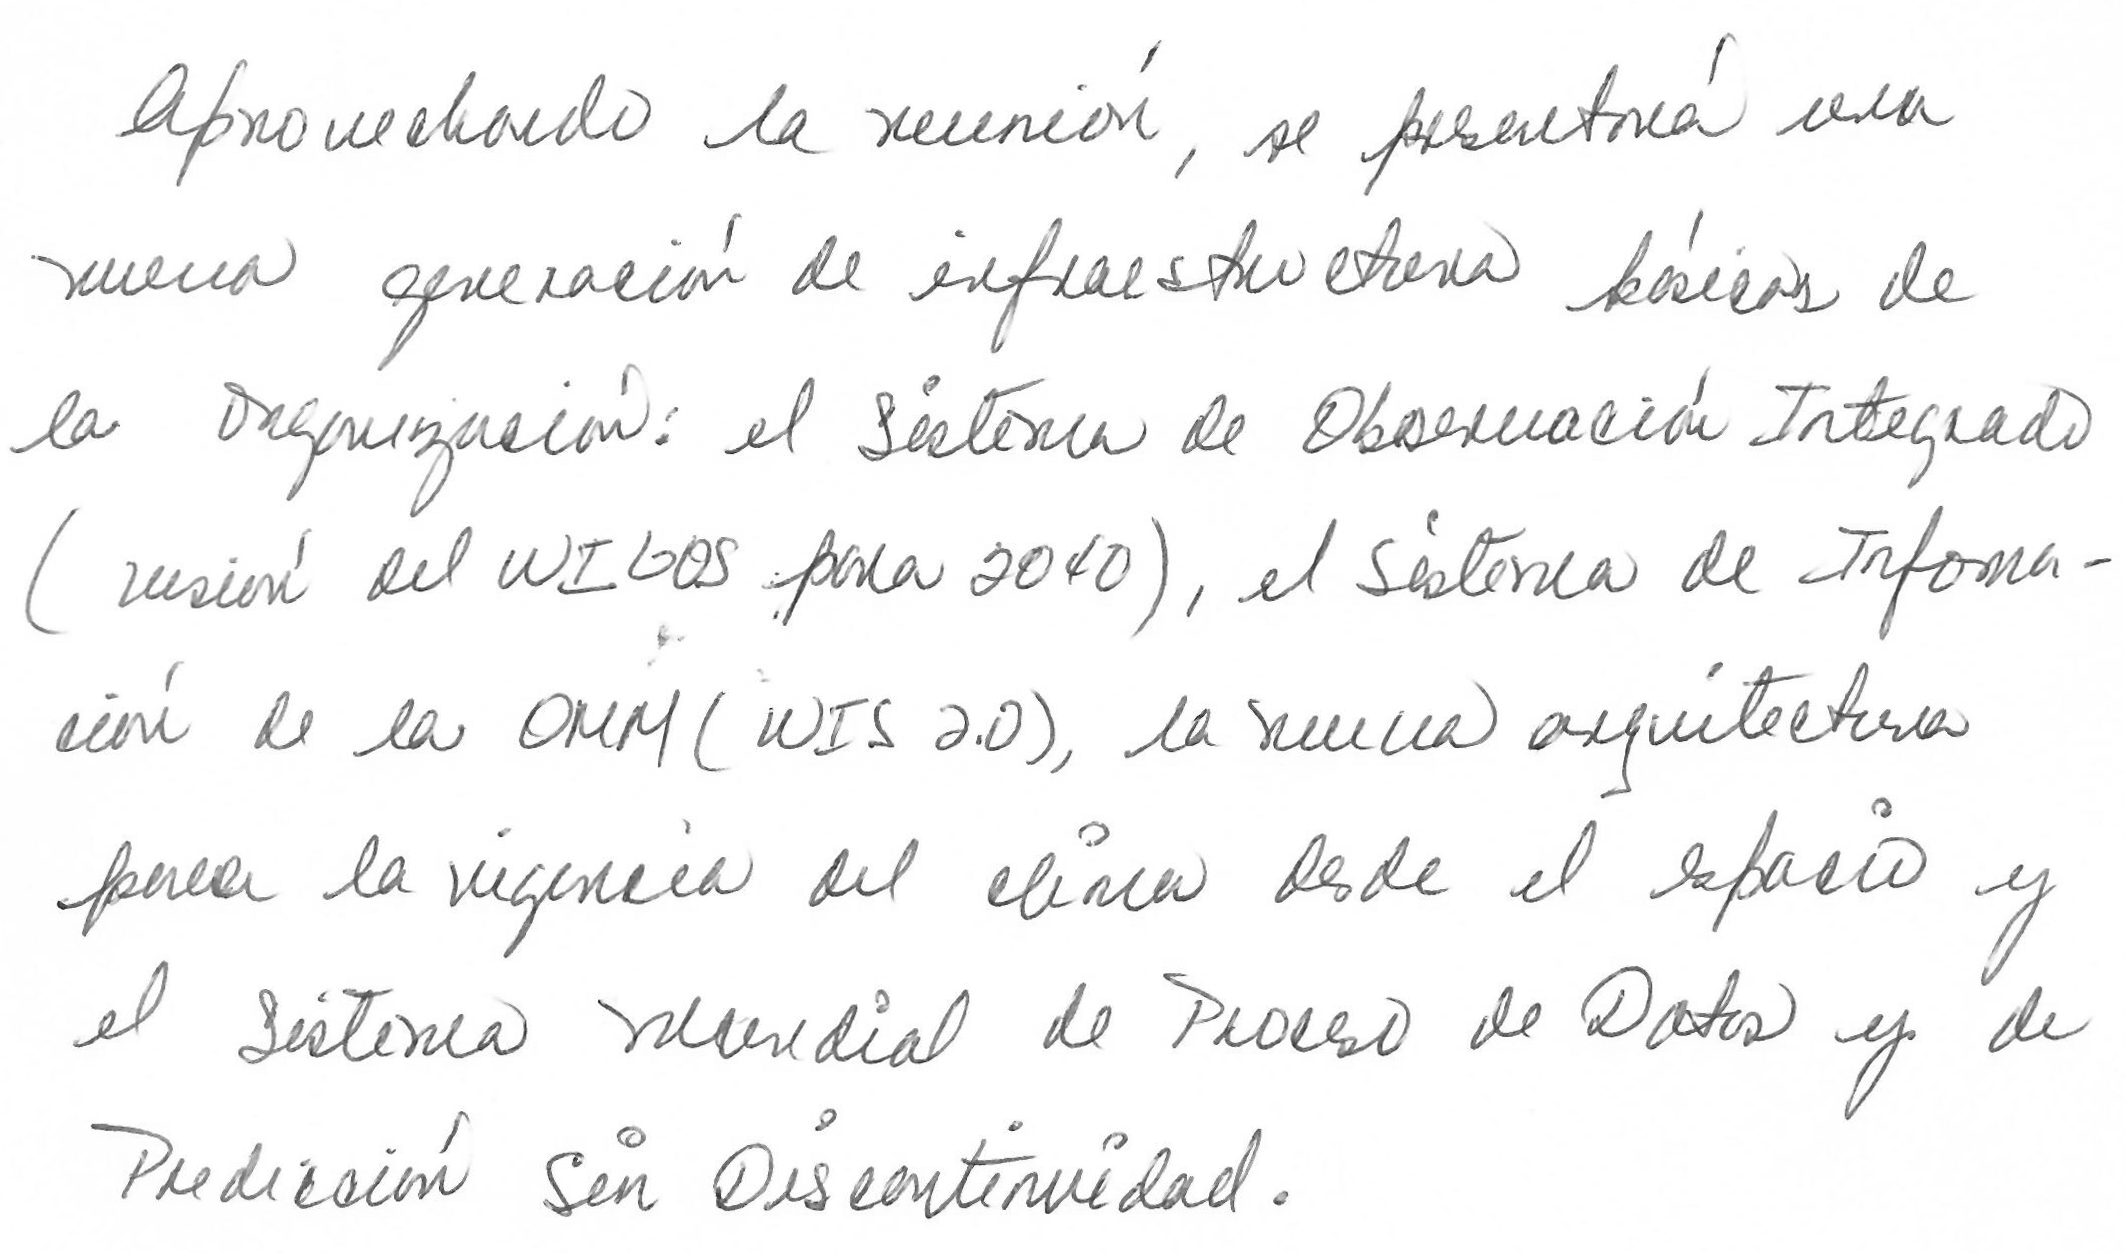 Aprovechando la reunión, se presentará una
nueva generación de infraestructura básicas de
la Organización: el Sistema de Observación Integrado
(visión del WIGOS para 2040), el Sistema de Infoma-
ción de la OMM (WIS 2.0), la nueva arquitectura
para la vigencia del clima desde el espacio y
el Sistema Mundial de Proceso de Datos y de
Predicción Sin Discontinuidad.